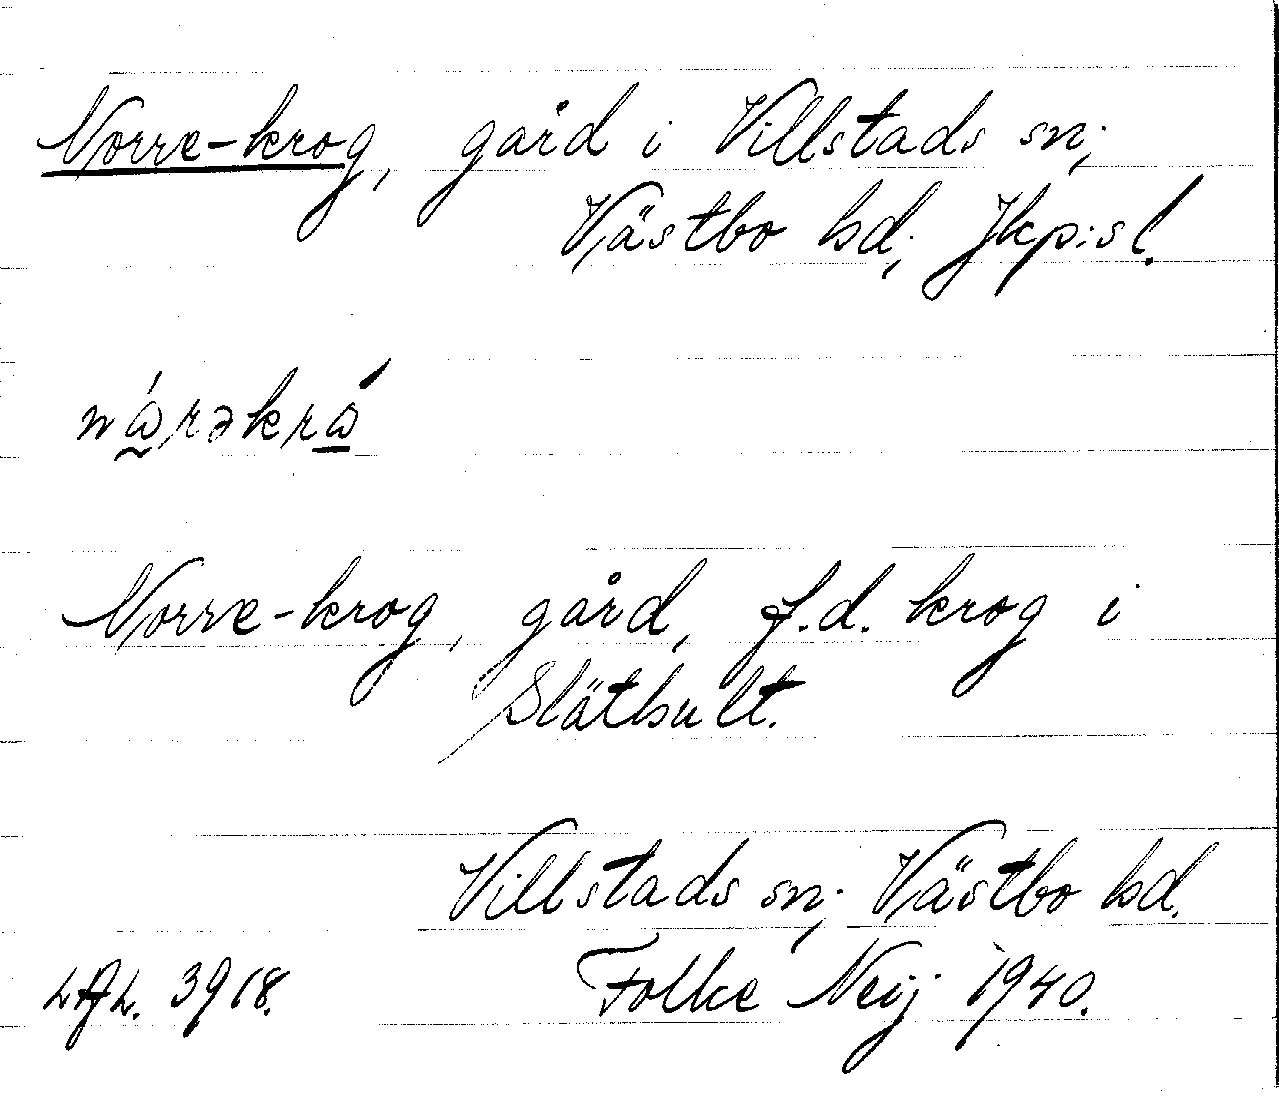 Norre-krog, gård i Villstads sn;
Västbo hd; Jkp:s l.
nǻrəkrǻ
Norre-krog, gård, f.d. krog i
Släthult.
Villstads sn; Västbo hd.
Folke Neij 1940.
3918.